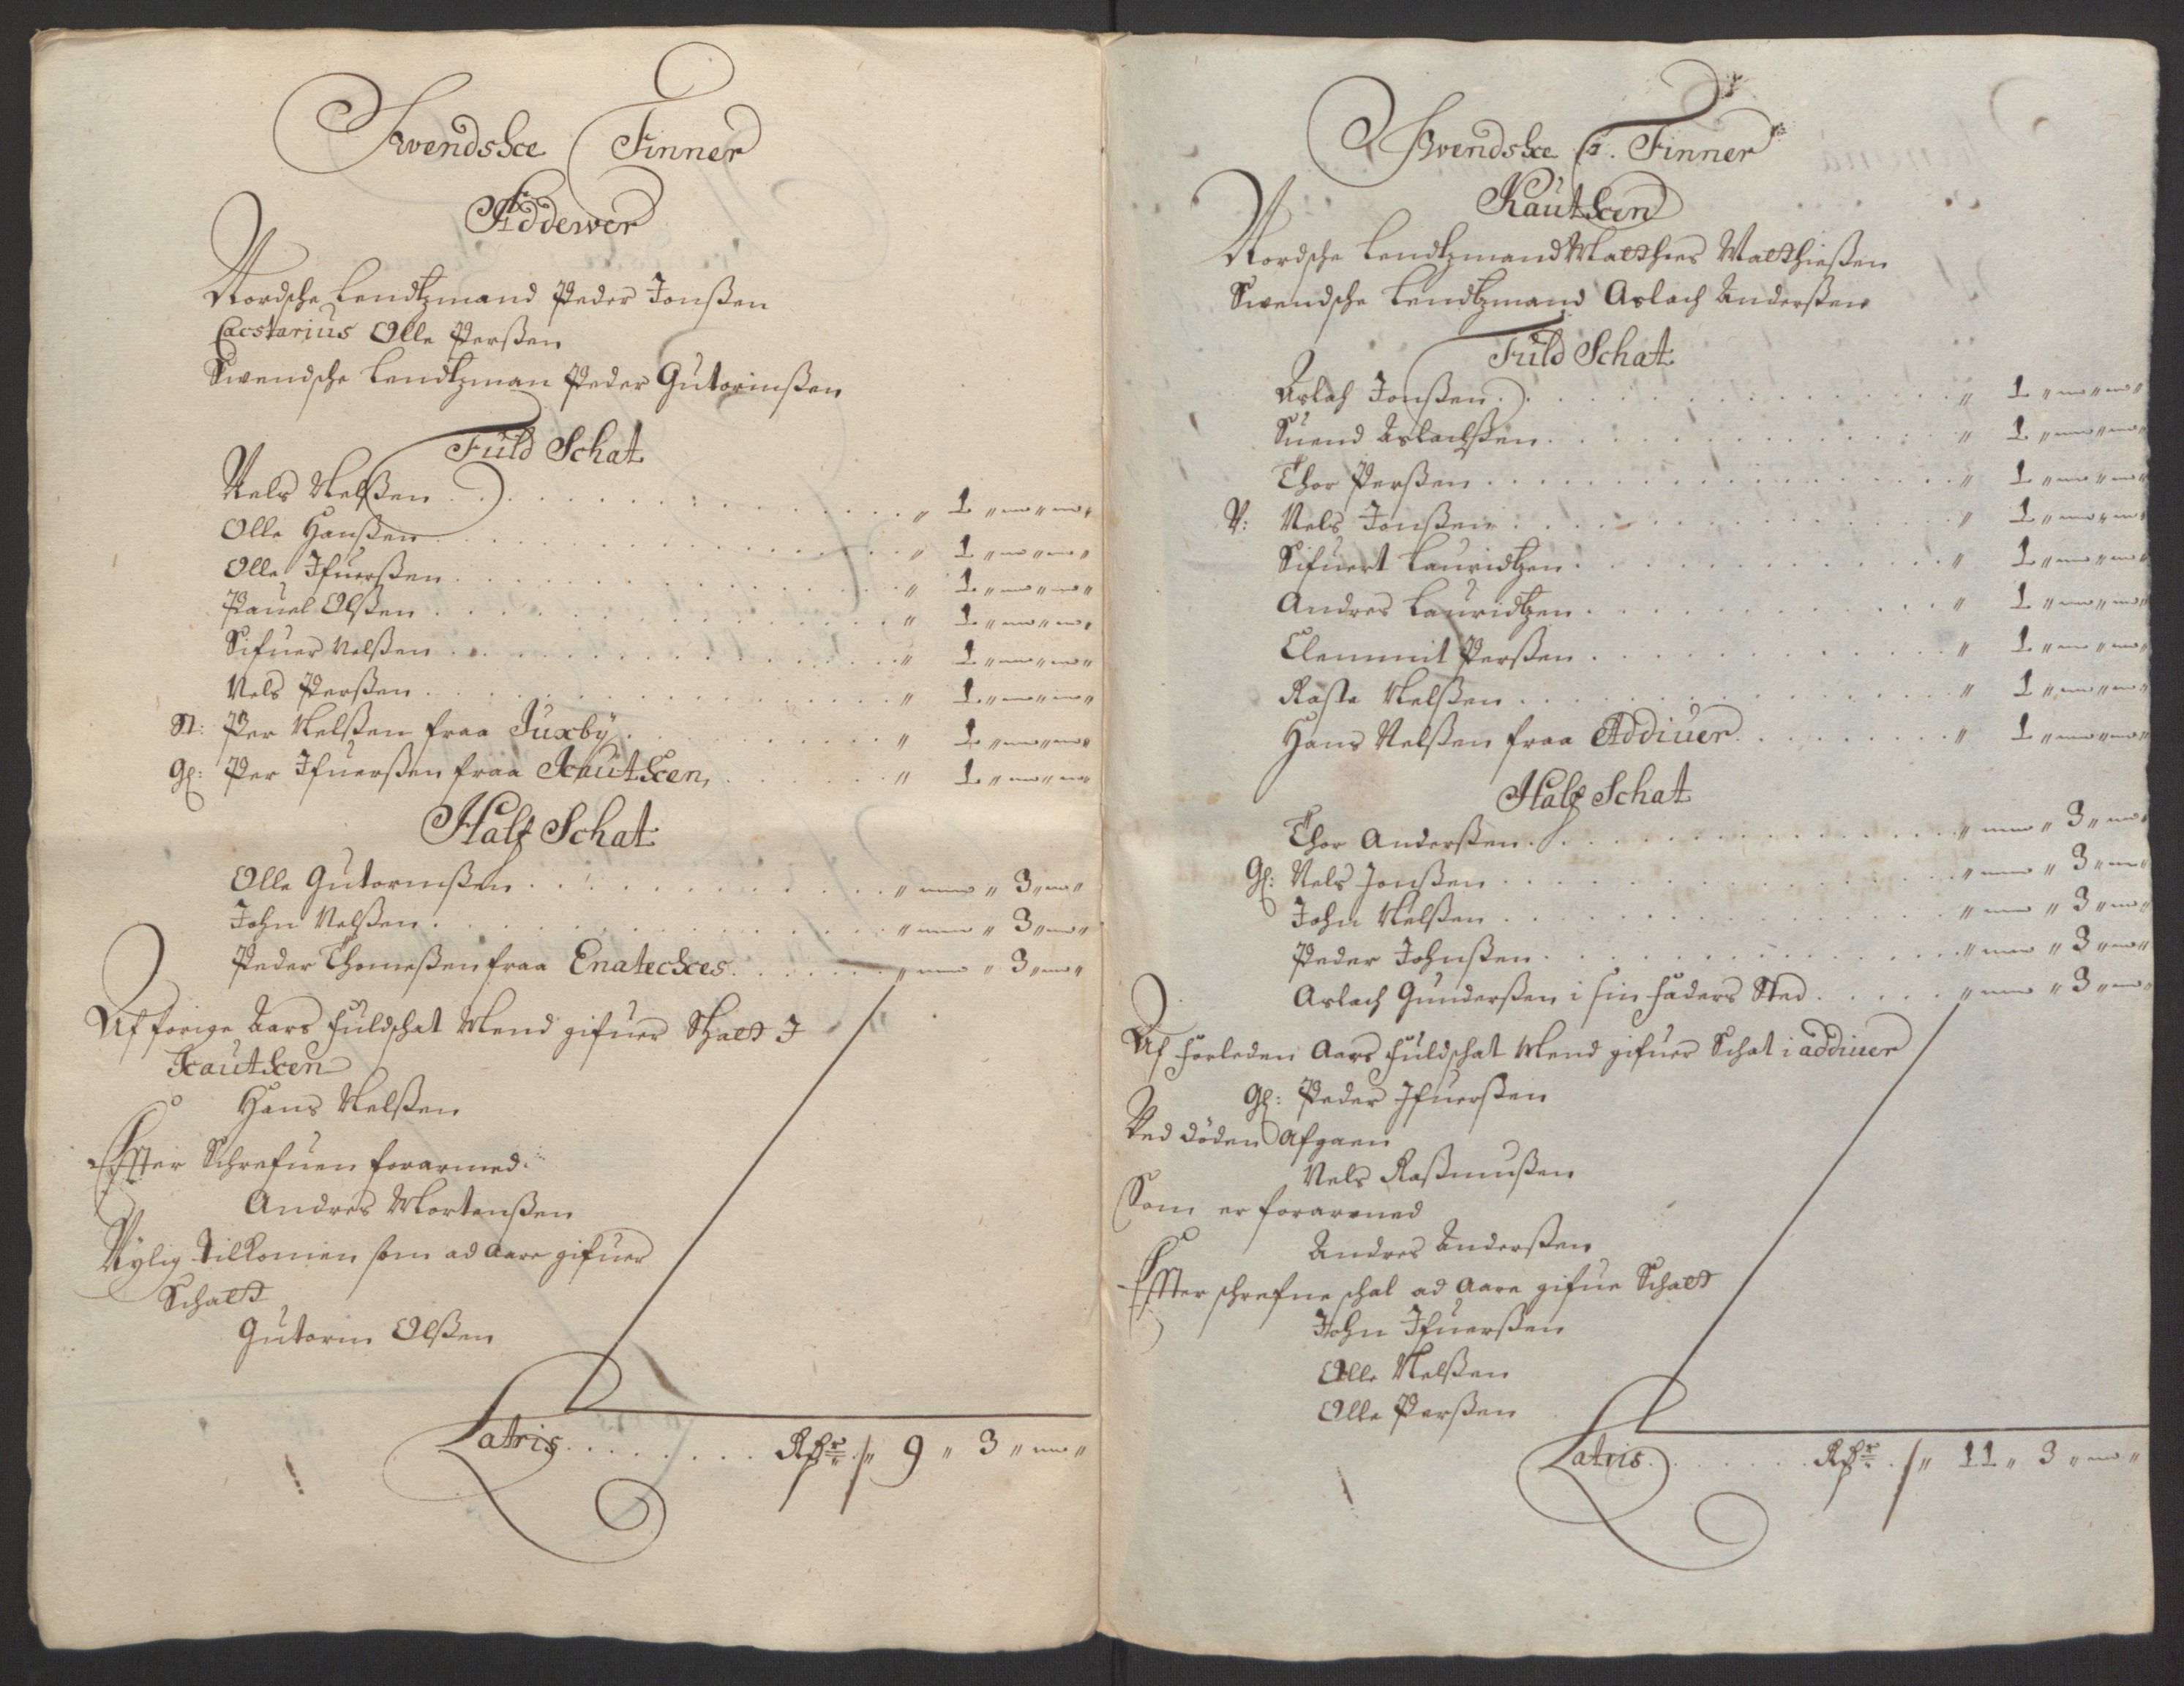 Swendske Finner
Addewer
Nordsche Lendtzmand Peder Jonßen
Olle Perßen
Swendsche Lendtzman Peder Gutormßen
Fuld Schat
Nels Nelßen . . . „ 1 „ — „ — „
Olle Hanßen . . . „ 1 „ — „ — „
Olle Ifuerßen . . . „ 1 „ — „ — „
Pauel Olßen . . . „ 1 „ — „ — „
Sifuer Nelßen . . . „ 1 „ — „ — „
Nels Perßen . . . „ 1 „ — „ — „
St: Per Nelßen fraa Juxby . . . „ 1 „ — „ — „
Gl: Per Ifuerßen fraa Kautken, . . . „ 1 „ — „ — „
Half Schat
Olle Gutormßen . . . „ — „ 3 „ — „
John Nelßen . . . „ — „ 3 „ — „
Peder Thomeßen fraa Enateckes . . . „ — „ 3 „ — „
Af forige Aars fuldschat Mend gifuer Skatt I
Kautken
Hans Nelßen
Effter Schrefuen forarmed:
Andres Mortenßen
Nÿlig tilkomen som ad Aare gifuer
Schatt
Gutorm Olßen
Latris . . . Rdr // 9 „ 3 „ — „
Swendske F. Finner
Kautken
Nordsche Lendtzmand Matthies Matthießen
Swendsche Lendtzmand Aslach Anderßen
Fuld Schat
Aslach Jonßen . . . „ 1 „ — „ — „
Suend Aslachßen . . . „ 1 „ — „ — „
Thor Perßen . . . „ 1 „ — „ — „
V: Nels Jonßen . . . „ 1 „ — „ — „
Sifuert Lauridtzen . . . „ 1 „ — „ — „
Andres Lauridtzen . . . „ 1 „ — „ — „
Clemmit Perßen . . . „ 1 „ — „ — „
Raste Nelßen . . . „ 1 „ — „ — „
Hans Nelßen fraa Addiuer . . . „ 1 „ — „ — „
Half Schat
Thor Anderßen . . . „ — „ 3 „ — „
Gl: Nels Jonßen . . . „ — „ 3 „ — „
John Nelßen . . . „ — „ 3 „ — „
Peder Johnßen . . . „ — „ 3 „ — „
Aslach Gunderßen i sin faders Sted . . . „ — „ 3 „ — „
Af forleden Aars fuldschat Mend gifuer Schat i addiuer
Gl: Peder Ifuerßen
Ved döden Afgaen
Nels Raßmußen
Som er forarmed
Andres Anderßen
Effter schrefne schal ad Aare gifue Schatt
John Ifuerßen
Olle Nelßen
Olle Perßen
Latris . . . Rdr // 11 „ 3 „ — „